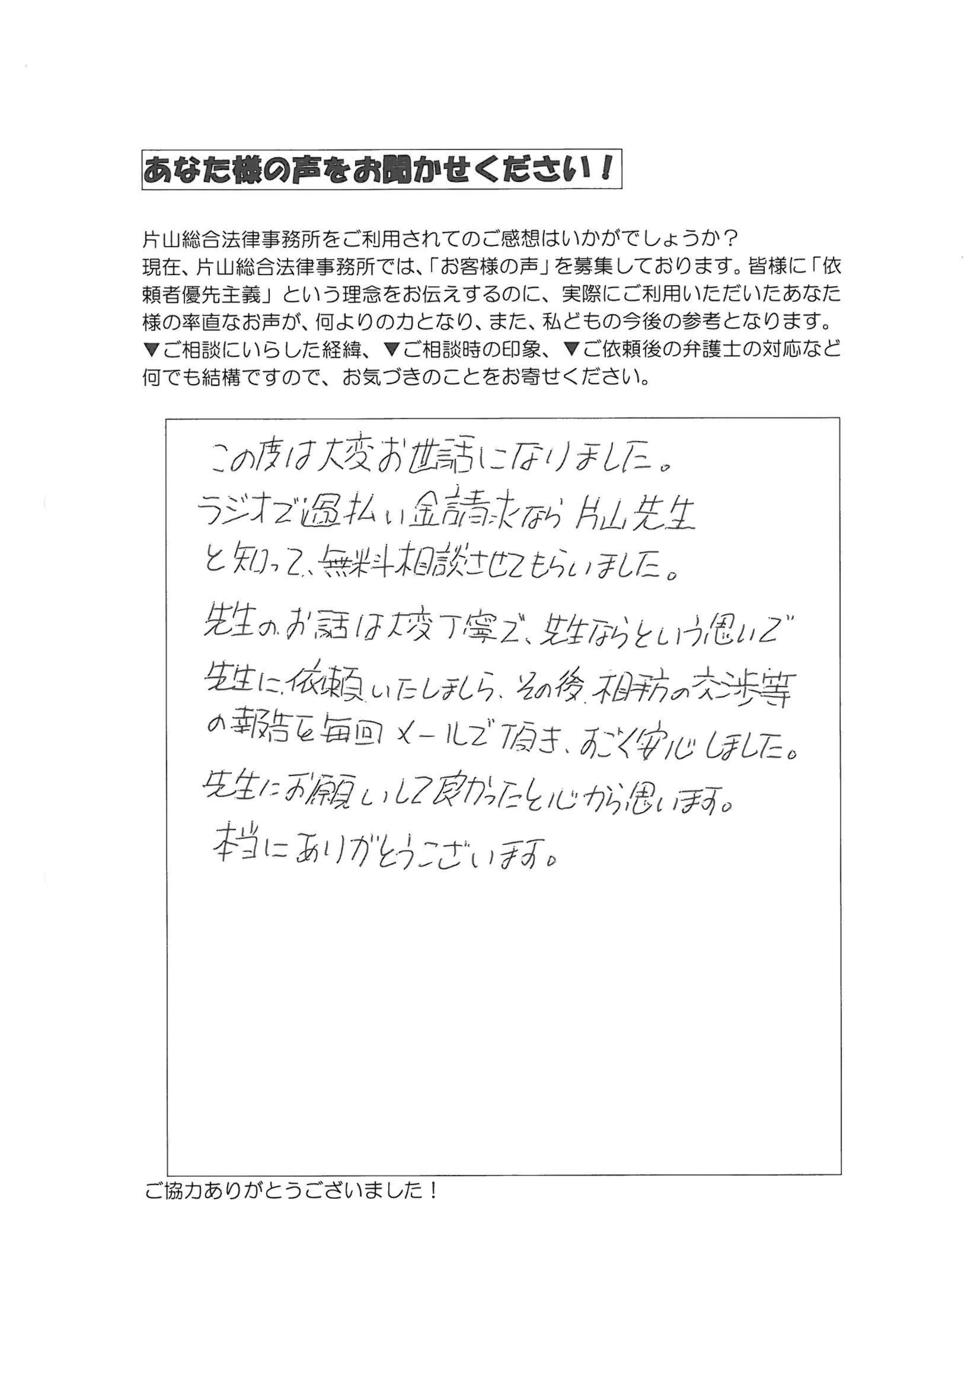 あなた様の声をお聞かせください！
片山総合法律事務所をご利用されてのご感想はいかがでしょうか？
現在、片山総合法律事務所では、「お客様の声」を募集しております。皆様に「依
頼者優先主義」という理念をお伝えするのに、実際にご利用いただいたあなた
様の率直なお声が、何よりの力となり、また、私どもの今後の参考となります。
▼ご相談にいらした経緯、▼ご相談時の印象、▼ご依頼後の弁護士の対応など
何でも結構ですので、お気づきのことをお寄せください。
この度は大変お世話になりました。
ラジオで過払い金請求なら片山先生
と知って、無料相談させてもらいました。
先生のお話は大変丁寧で、先生ならという思いで
先生に依頼いたしましら、その後、相手方の交渉等
の報告を毎回メールで頂き、すごく安心しました。
先生にお願いして良かったと心から思います。
本当にありがとうございます。
ご協力ありがとうございました！